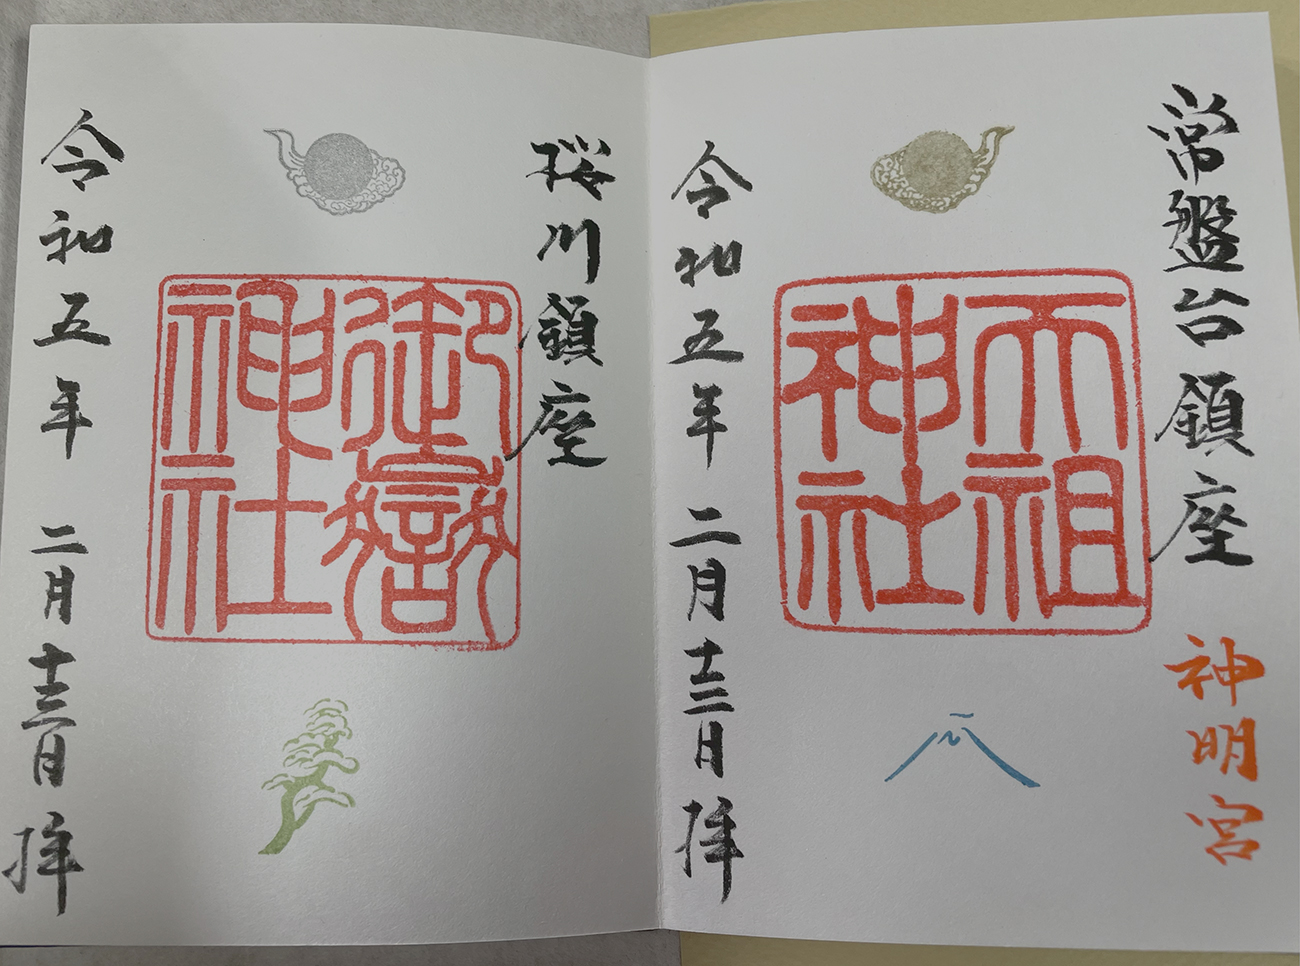 常盤台鎮座 神明宮
天祖
神社
令和五年 二月十三日 拝
桜川鎮座
御嶽
神社
令和五年 二月十三日 拝